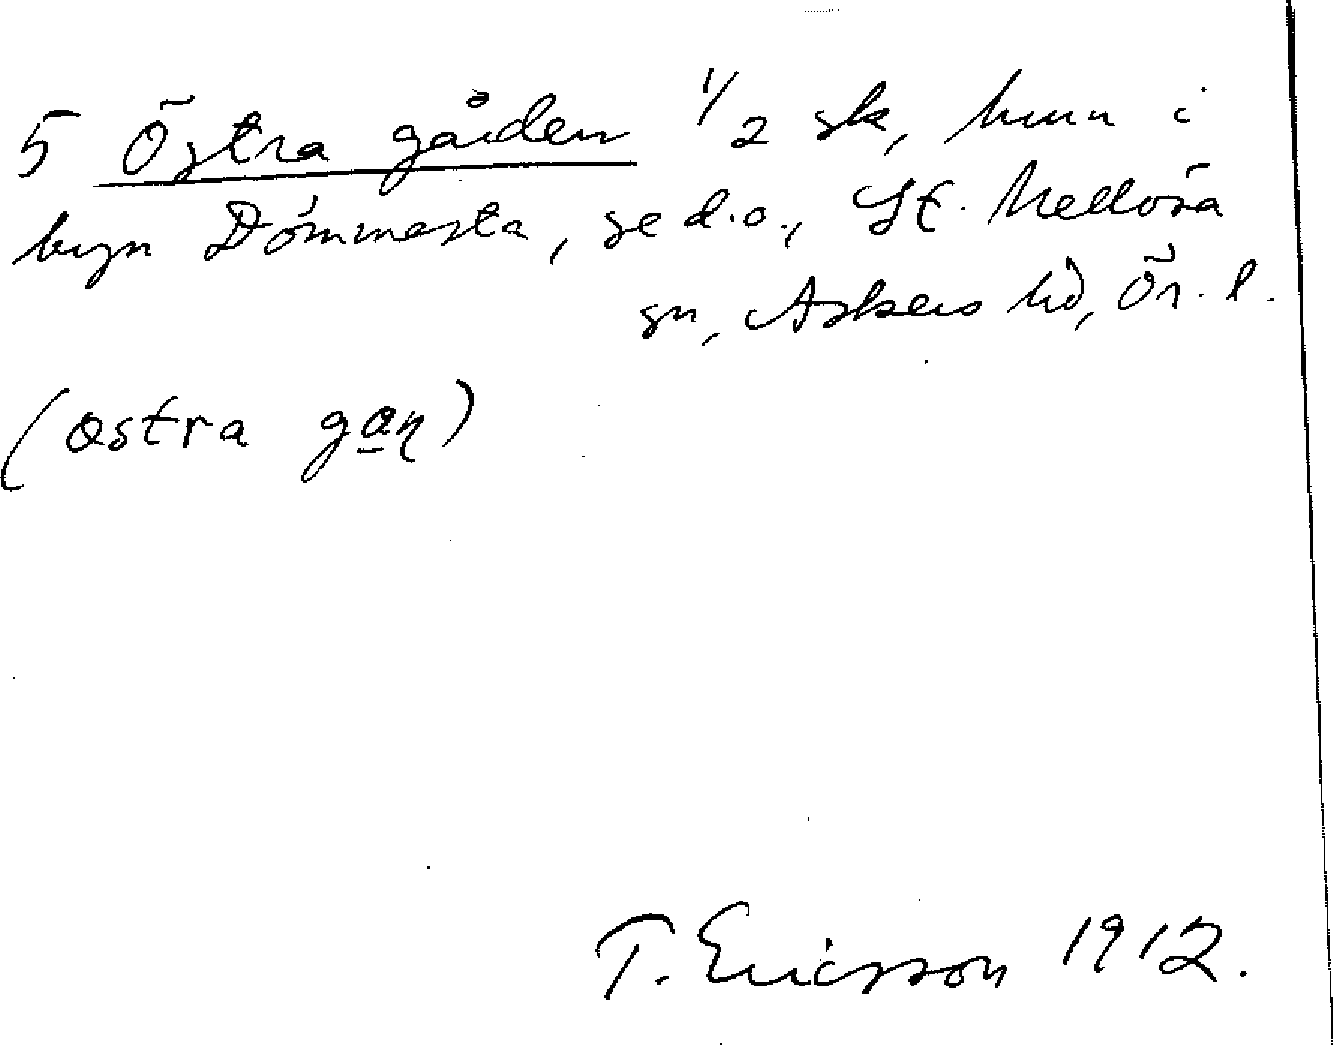 5 Östra gården 1/2 sk, hmn i
byn Dömmesta, se d.o., St. Mellösa
sn, Askers hd, Ör. l.
(østra gan̢)
T. Ericsson 1912.